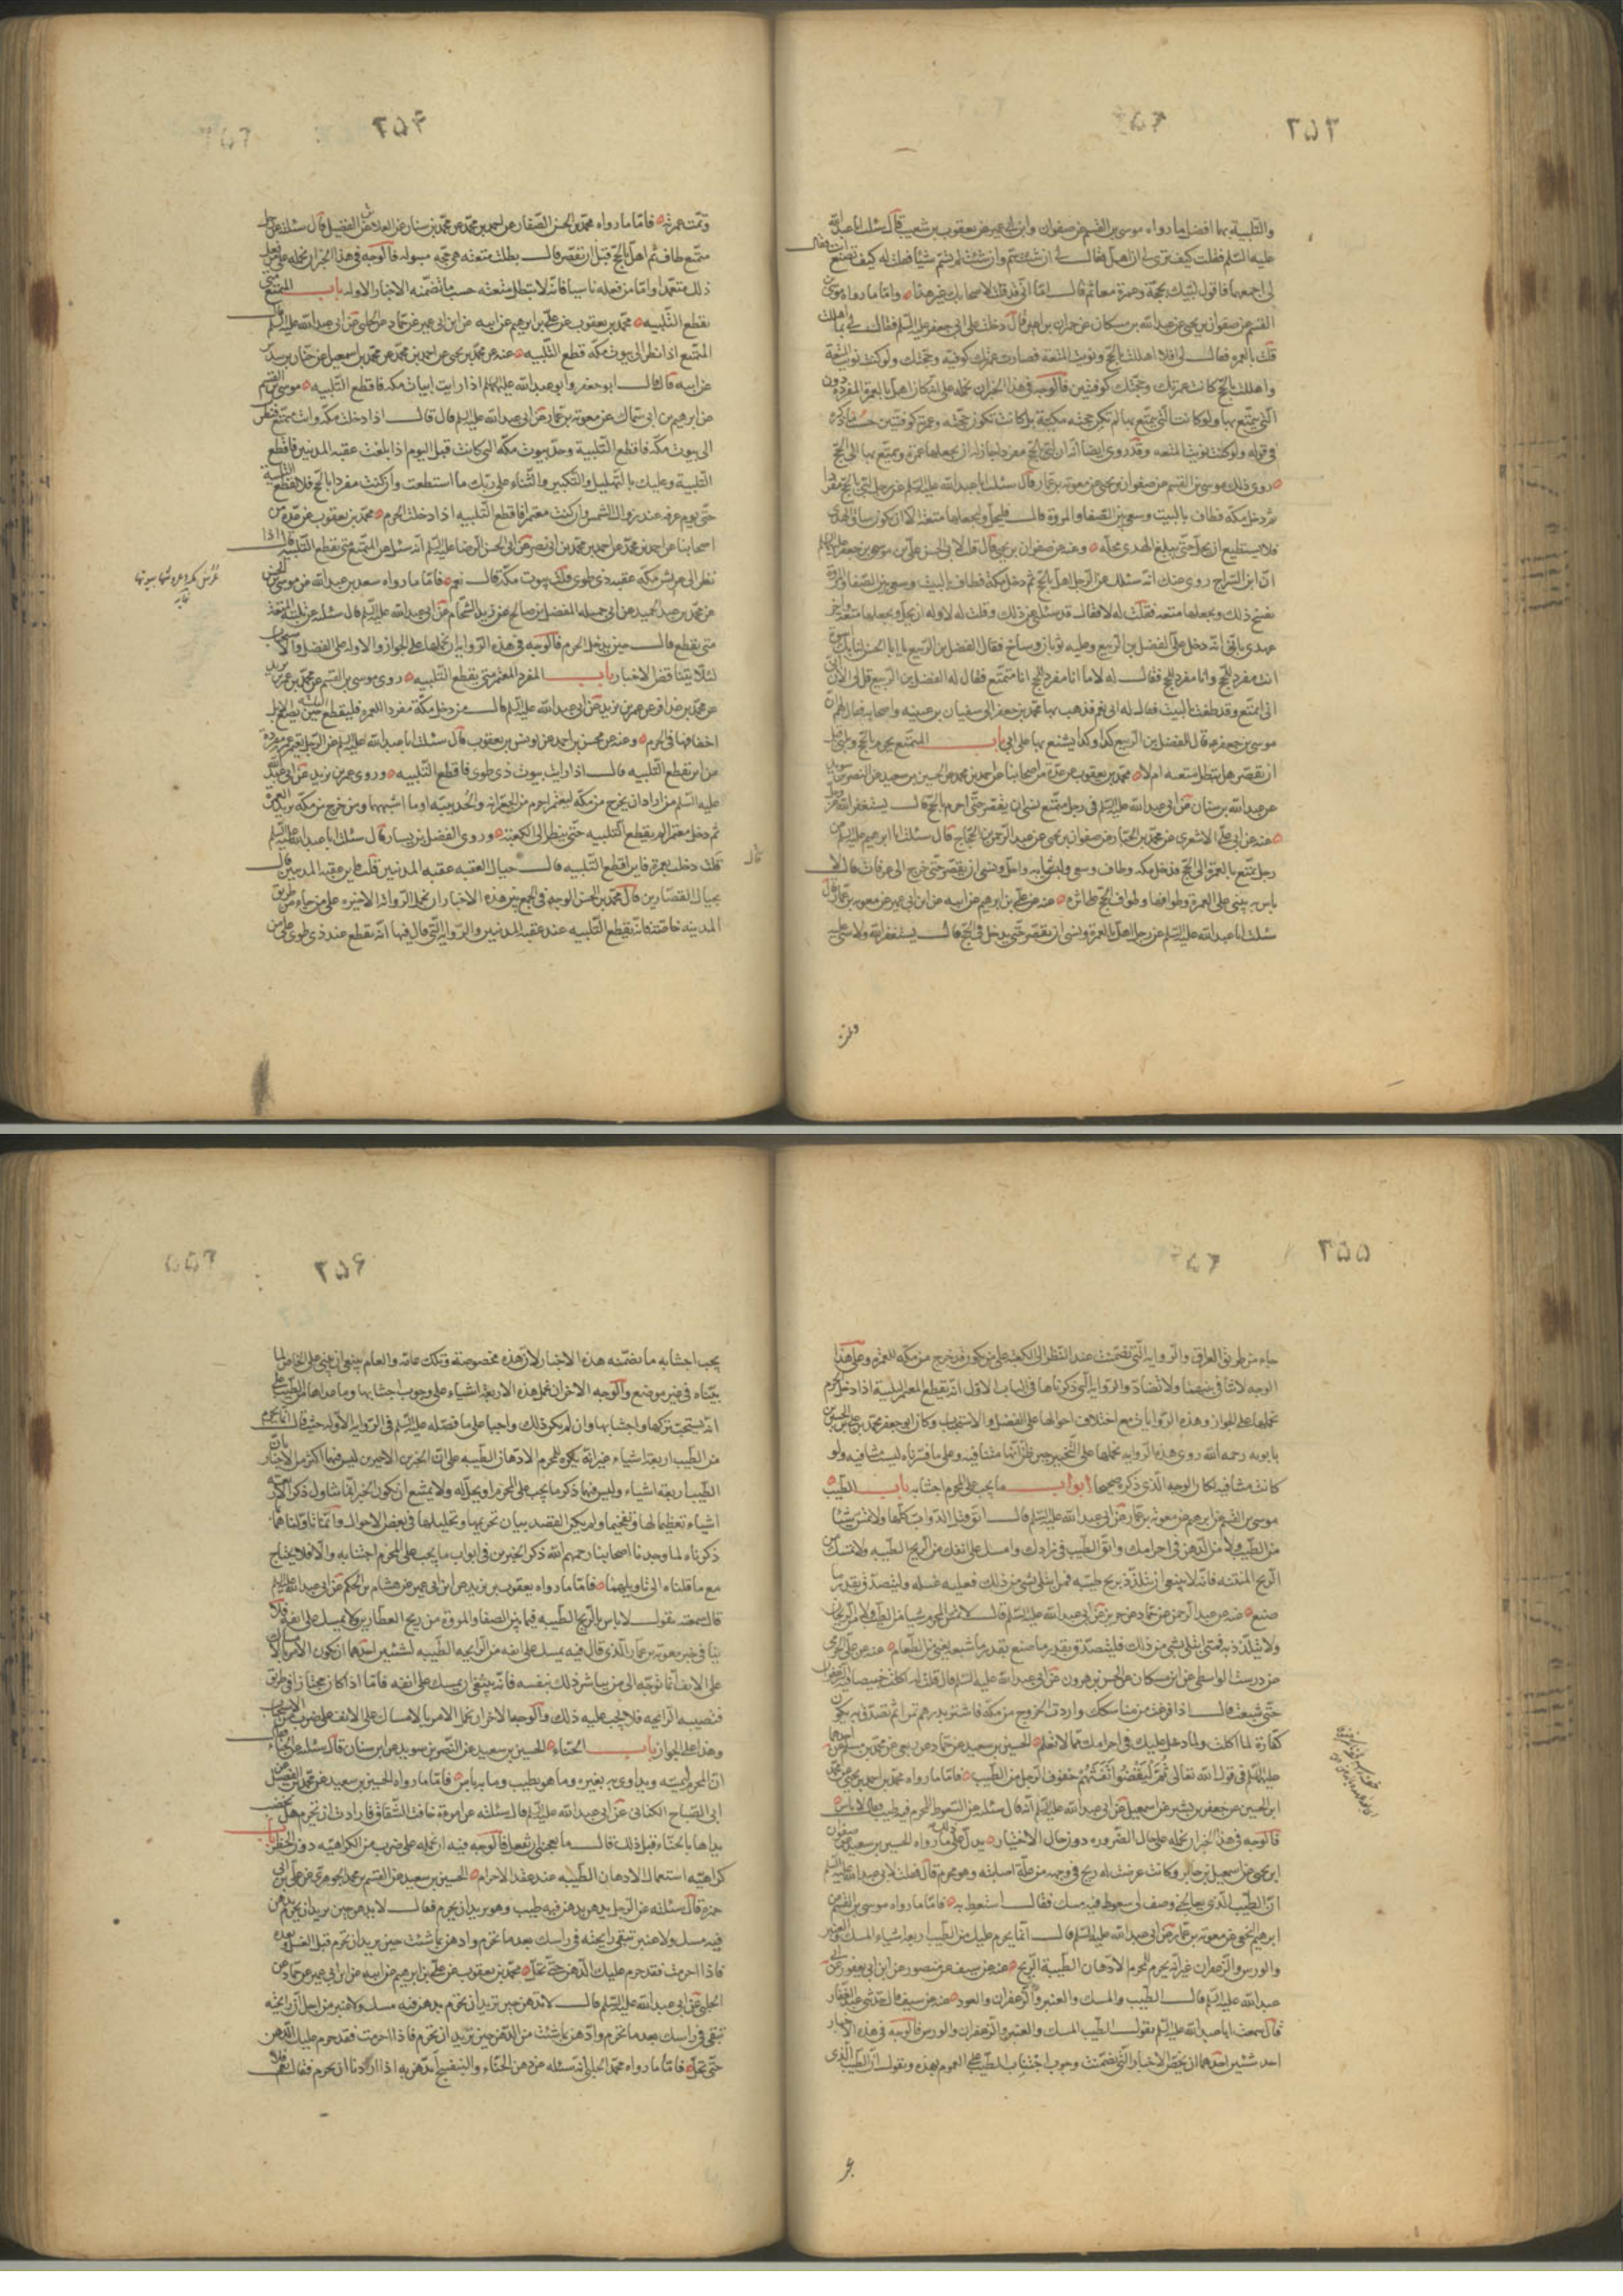 ٢٥٣
والتلبية بهما افضل ما رواه موسى بن القسم عن صفوان وابن ابى عمير عن يعقوب بن شعيب قال سئلت ابا عبد الله
عليه السلم فقلت كيف ترى لى ان اهل فقال لى ان شئت سم وان شئت لم تسم شيئا فقلت له كيف تصنع انت فقال
اجمعهما فاقول لبيك بحجة وعمرة معا ثم قال اما انى قد قلت لاصحابك غير هذا واما ما رواه موسى بن
القسم عن صفوان بن يحيى عن عبد الله بن مسكان عن حمران بن اعين قال دخلت على ابى جعفر عليه السلم فقال لى بما اهللت
قلت بالعمرة فقال لى افلا اهللت بالحج ونويت المتعة فصارت عمرتك كوفية وحجتك ولو كنت نويت المتعة
واهللت بالحج كانت عمرتك وحجتك كوفيتين فالوجه فى هذا الخبر ان نحمله على انه كان اهل بالعمرة المفردة دون
التى يتمتع بها ولو كانت التى يتمتع بها لم تكن حجته مكية بل كانت تكون حجته وعمرته كوفيتين حسب ما ذكره
فى قوله ولو كنت نويت المتعة وقد روى ايضا انه ان لبى بالحج مفردا جاز له ان يجعلها عمرة ويتمتع بها الى الحج
روى ذلك موسى بن القسم عن صفوان بن يحيى عن معوية بن عمار قال سئلت ابا عبد الله عليه السلم عن رجل لبى بالحج مفردا
ثم دخل مكة فطاف بالبيت وسعى بين الصفا والمروة قال فليحل وليجعلها متعة الا ان يكون ساق الهدى
فلا يستطيع ان يحل حتى يبلغ الهدى محله وعنه عن صفوان بن يحيى قال قلت لابى الحسن على بن موسى بن جعفر عليهم السلم
ان ابن السراج روى عنك انه سئلك عن الرجل اهل بالحج ثم دخل مكة فطاف بالبيت وسعى بين الصفا والمروة
يفسخ ذلك ويجعلها متعة فقلت له لا فقال قد سئلنى عن ذلك وقلت له لا وله ان يحل ويجعلها متعة واخر
عهدى بابى انه دخل على الفضل بن الربيع وعليه ثوبان وساج فقال الفضل بن الربيع يا ابا الحسن لنا بك اسوة
انت مفرد للحج وانا مفرد للحج فقال له لا ما انا مفرد للحج انا متمتع فقال له الفضل بن الربيع فلى الان
ان اتمتع وقد طفت بالبيت فقال له ابى نعم فذهب بها محمد بن جعفر الى سفيان بن عيينة واصحابه فقال لهم ان
موسى بن جعفر قال للفضل بن الربيع كذا وكذا يشنع بها على ابى باب المتمتع يحرم بالحج ويلبى قبل
ان يقصر هل تبطل متعته ام لا محمد بن يعقوب عن عدة من اصحابنا عن احمد بن محمد عن الحسين بن سعيد عن النضر بن سويد
عن عبد الله بن سنان عن ابى عبد الله عليه السلم فى رجل متمتع نسى ان يقصر حتى احرم بالحج قال يستغفر الله عز وجل
عنه عن ابى على الاشعرى عن محمد بن عبد الجبار عن صفوان بن يحيى عن عبد الرحمن بن الحجاج قال سئلت ابا ابرهيم عليه السلم عن
رجل تمتع بالعمرة الى الحج فدخل مكة وطاف وسعى ولبس ثيابه واحل ونسى ان يقصر حتى خرج الى عرفات قال لا
باس به يبنى على العمرة وطوافها وطواف الحج على اثره عنه عن على بن ابرهيم عن ابيه عن ابن ابى عمير عن معوية بن عمار قال
سئلت ابا عبد الله عليه السلم عن رجل اهل بالعمرة ونسى ان يقصر حتى يدخل فى الحج قال يستغفر الله ولا شى عليه
وتمت
٢٥٤
وتمت عمرته فاما ما رواه محمد بن الحسن الصفار عن احمد بن محمد عن محمد بن سنان عن العلا عن الفضيل قال سئلته عن رجل
متمتع طاف ثم اهل بالحج قبل ان يقصر قال بطلت متعته هى حجة مبتولة فالوجه فى هذا الخبر ان نحمله على من فعل
ذلك متعمدا واما من فعله ناسيا فانه لا تبطل متعته حسب ما تضمنه الاخبار الاوله باب المتمتع متى
يقطع التلبيه محمد بن يعقوب عن على بن ابرهيم عن ابيه عن ابن ابى عمير عن حماد عن الحلبى عن ابى عبد الله عليه السلم قال
المتمتع اذا نظر الى بيوت مكة قطع التلبيه عنه عن محمد بن يحيى عن احمد بن محمد عن محمد بن اسمعيل عن حنان بن سدير
عن ابيه قال قال ابو جعفر وابو عبد الله عليهما السلم اذا رايت ابيات مكة فاقطع التلبيه موسى بن القسم
عن ابرهيم بن ابى سماك عن معوية بن عمار عن ابى عبد الله عليه السلم قال قال اذا دخلت مكة وانت متمتع فنظرت
الى بيوت مكة فاقطع التلبية وحد بيوت مكة التى كانت قبل اليوم اذا بلغت عقبة المدنيين فاقطع
التلبية وعليك بالتهليل والتكبير والثناء على ربك ما استطعت وان كنت مفردا بالحج فلا تقطع التلبية
حتى يوم عرفة عند زوال الشمس وان كنت معتمرا فاقطع التلبيه اذا دخلت الحرم محمد بن يعقوب عن عدة من
اصحابنا عن احمد بن محمد عن احمد بن محمد بن ابى نصر عن ابى الحسن الرضا عليه السلم انه سئل عن المتمتع متى يقطع التلبيه قال اذا
نظر الى عراش مكة عقبة ذى طوى قلت بيوت مكة قال نعم فاما ما رواه سعد بن عبد الله عن موسى بن الحسن
عن محمد بن عبد الحميد عن ابى جميله المفضل بن صالح عن زيد الشحام عن ابى عبد الله عليه السلم قال سئلته عن تلبية المتعة
متى تقطع قال حين يدخل الحرم فالوجه فى هذه الرواية ان نحملها على الجواز والاوله على الفضل والاستحباب
لئلا يتناقض الاخبار باب المفرد المعتمر متى يقطع التلبيه روى موسى بن القسم عن محمد بن عمر بن يزيد
عن محمد بن عذافر عن عمر بن يزيد عن ابى عبد الله عليه السلم قال من دخل مكة مفردا للعمرة فليقطع التلبية حين تضع الابل
اخفافها فى الحرم وعنه عن محسن بن احمد عن يونس بن يعقوب قال سئلت ابا عبد الله عليه السلم عن الرجل يعتمر عمرة مفردة
من اين يقطع التلبيه قال اذا رايت بيوت ذى طوى فاقطع التلبيه وروى عمر بن يزيد عن ابى عبد الله
عليه السلم من اراد ان يخرج من مكة ليعتمر احرم من الجعرانة والحديبيه او ما اشبهها ومن خرج من مكة يريد العمرة
ثم دخل معتمرا لم يقطع التلبيه حتى ينظر الى الكعبة وروى الفضيل بن يسار قال سئلت ابا عبد الله عليه السلم
قلت دخلت بعمرة فاين اقطع التلبيه قال حيال العقبه عقبه المدنيين قلت فاين عقبه المدنيين قال
بحيال القصارين قال محمد بن الحسن الوجه فى الجمع بين هذه الاخبار ان نحمل الرواية الاخيره على من جاء من طريق
المدينه خاصة فانه يقطع التلبيه عند عقبه المدنيين والرواية التى قال فيها انه يقطع عند ذى طوى على من
٢٥٥
جاء من طريق العراق والرواية التى تضمنت عند النظر الى الكعبة على من يكون قد خرج من مكه للعمرة وعلى هذا
الوجه لا تنافى بينهما ولا تضاد والرواية التى ذكرناها فى الباب الاول انه يقطع المعتمر التلبية اذا دخل الحرم
نحملها على الجواز وهذه الروايات مع اختلاف احوالها على الفضل والاستحباب وكان ابو جعفر محمد بن على بن الحسين بن
بابويه رحمه الله روى هذه الروايه نحملها على التخيير حين ظن انها متنافيه وعلى ما فسرناه ليست متنافيه ولو
كانت متنافيه لكان الوجه الذى ذكره صحيحا ابواب ما يجب على المحرم اجتنابه باب الطيب
موسى بن القسم عن ابرهيم عن معوية بن عمار عن ابى عبد الله عليه السلم قال اتق قتل الدواب كلها ولا تمس شيئا
من الطيب ولا من الدهن فى احرامك واتق الطيب فى زادك وامسك على انفك من الريح الطيبه ولا تمسك من
الريح المنتنه فانه لا ينبغى ان يتلذذ بريح طيبه فمن ابتلى بشى من ذلك فعليه غسله وليتصدق بقدر ما
صنع عنه عن عبد الرحمن عن حماد عن حريز عن ابى عبد الله عليه السلم قال لا يمس المحرم شيئا من الطيب ولا من الريحان
ولا يتلذذ به فمتى ابتلى بشى من ذلك فليتصدق بقدر ما صنع بقدر ما شبعه يعنى من الطعام عنه عن على الجرمى
عن درست الواسطى عن ابن مسكان عن الحسن بن هرون عن ابى عبد الله عليه السلم قال قلت له اكلت خبيصا فيه زعفران
حتى شبعت قال اذا فرغت من مناسكك واردت الخروج من مكة فاشتر بدرهم تمرا ثم تصدق به يكون
كفارة لما اكلت ولما دخل عليك فى احرامك مما لا تعلم الحسين بن سعيد عن حماد عن ربعى عن محمد بن مسلم عن احدهما
عليهما السلم فى قول الله تعالى ثُمَّ لْيَقْضُوا تَفَثَهُمْ حفوف الرجل من الطيب فاما ما رواه محمد بن احمد بن يحيى عن محمد
ابن الحسين عن جعفر بن بشير عن اسمعيل عن ابى عبد الله عليه السلم انه قال سئل عن السعوط للمحرم فيه طيب فقال لا باس
فالوجه فى هذا الخبر ان نحمله على حال الضروره دون حال الاختيار يدل على ذلك ما رواه الحسين بن سعيد عن صفوان
ابن يحيى عن اسمعيل بن جابر وكانت عرضت له ريح فى وجهه من علة اصابته وهو محرم قال فقلت لابى عبد الله عليه السلم
ان الطبيب الذى يعالجنى وصف لى سعوطا فيه مسك فقال استعط به فاما ما رواه موسى بن القسم عن
ابرهيم النخعى عن معوية بن عمار عن ابى عبد الله عليه السلم قال انما يحرم عليك من الطيب اربعه اشياء المسك والعنبر
والورس والزعفران غير انه يحرم للمحرم الادهان الطيبة الريح عنه عن سيف عن منصور عن ابن ابى يعفور عن ابى
عبد الله عليه السلم قال الطيب والمسك والعنبر والزعفران والعود عنه عن سيف قال حدثنى عبد الغفار
قال سمعت ابا عبد الله عليه السلم يقول الطيب المسك والعنبر والزعفران والورس فالوجه فى هذه الاخبار
احد شيئين احدهما ان نخص الاخبار التى تضمنت وجوب اجتناب الطيب على العموم بهذه ونقول ان الطيب الذى
٢٥٦
يجب اجتنابه ما تضمنه هذه الاخبار لان هذه مخصوصة وتلك عامة والعام ينبغى ان يبنى على الخاص لما
بيناه فى غير موضع والوجه الاخر ان نحمل هذه الاربعة اشياء على وجوب اجتنابها وما عداها من الطيب على
انه يستحب تركها واجتنابها وان لم يكن ذلك واجبا على ما فصله عليه السلم فى الرواية الاوله حيث قال انما يحرم
من الطيب اربعة اشياء غير انه يكره للمحرم الادهان الطيبه على ان الخبرين الاخيرين ليس فيهما اكثر من الاخبار بان
الطيب اربعة اشياء وليس فيها ذكر ما يجب على المحرم او يحل له ولا يمتنع ان يكون الخبر انما تناول ذكر الاربعة
اشياء تعظيما لها وتفخيما ولم يكن القصد بيان تحريمها وتحليلها فى بعض الاحوال وانما تاولناهما
ذكرناه لما وجدنا اصحابنا رحمهم الله ذكروا الخبرين فى ابواب ما يجب على المحرم اجتنابه والا فلا يحتاج
مع ما قلناه الى تاويلهما فاما ما رواه يعقوب بن يزيد عن ابن ابى عمير عن هشام بن الحكم عن ابى عبد الله عليه السلم
قال سمعته يقول لا باس بالريح الطيبه فيما بين الصفا والمروة من ريح العطارين ولا يمسك على انفه فلا
ينافى خبر معوية بن عمار الذى قال فيه يمسك على انفه من الرايحه الطيبه لشيئين احدهما ان يكون الامر بالامساك
على الانف انما توجه الى من يباشر ذلك بنفسه فانه ينبغى ان يمسك على انفه فاما اذا كان مجتازا فى طريق
فتصيبه الرايحه فلا يجب عليه ذلك والوجه الاخر ان نحمل الامر بالامساك على الانف على ضرب من الاستحباب
وهذا على الجواز باب الحناء الحسين بن سعيد عن النضر بن سويد عن ابن سنان قال سئلته عن الحناء
ان المحرم ليمسه ويداوى به بعيره وما هو بطيب وما به باس فاما ما رواه الحسين بن سعيد عن محمد بن الفضيل عن
ابى الصباح الكنانى عن ابى عبد الله عليه السلم قال سئلته عن امرءة خافت الشقاق فارادت ان تحرم هل تخضب
يداها بالحناء قبل ذلك قال ما يعجبنى ان تفعل فالوجه فيه ان نحمله على ضرب من الكراهيه دون الحظر باب
كراهيه استعمال الادهان الطيبه عند عقد الاحرام الحسين بن سعيد عن القسم بن محمد الجوهرى عن على بن ابى
حمزه قال سئلته عن الرجل يدهن بدهن فيه طيب وهو يريد ان يحرم فقال لا يدهن حين يريد ان يحرم بدهن
فيه مسك ولا عنبر تبقى رايحته فى راسك بعد ما تحرم وادهن بما شئت حين تريد ان تحرم قبل الغسل وبعده
فاذا احرمت فقد حرم عليك الدهن حتى تحل محمد بن يعقوب عن على بن ابرهيم عن ابيه عن ابن ابى عمير عن حماد عن
الحلبى عن ابى عبد الله عليه السلم قال لا تدهن حين تريد ان تحرم بدهن فيه مسك ولا عنبر من اجل ان رايحته
تبقى فى راسك بعد ما تحرم وادهن بما شئت من الدهن حين تريد ان تحرم فاذا احرمت فقد حرم عليك الدهن
حتى تحل فاما ما رواه محمد الحلبى انه سئله عن دهن الحناء والبنفسج اندهن به اذا اردنا ان نحرم فقال نعم فلا